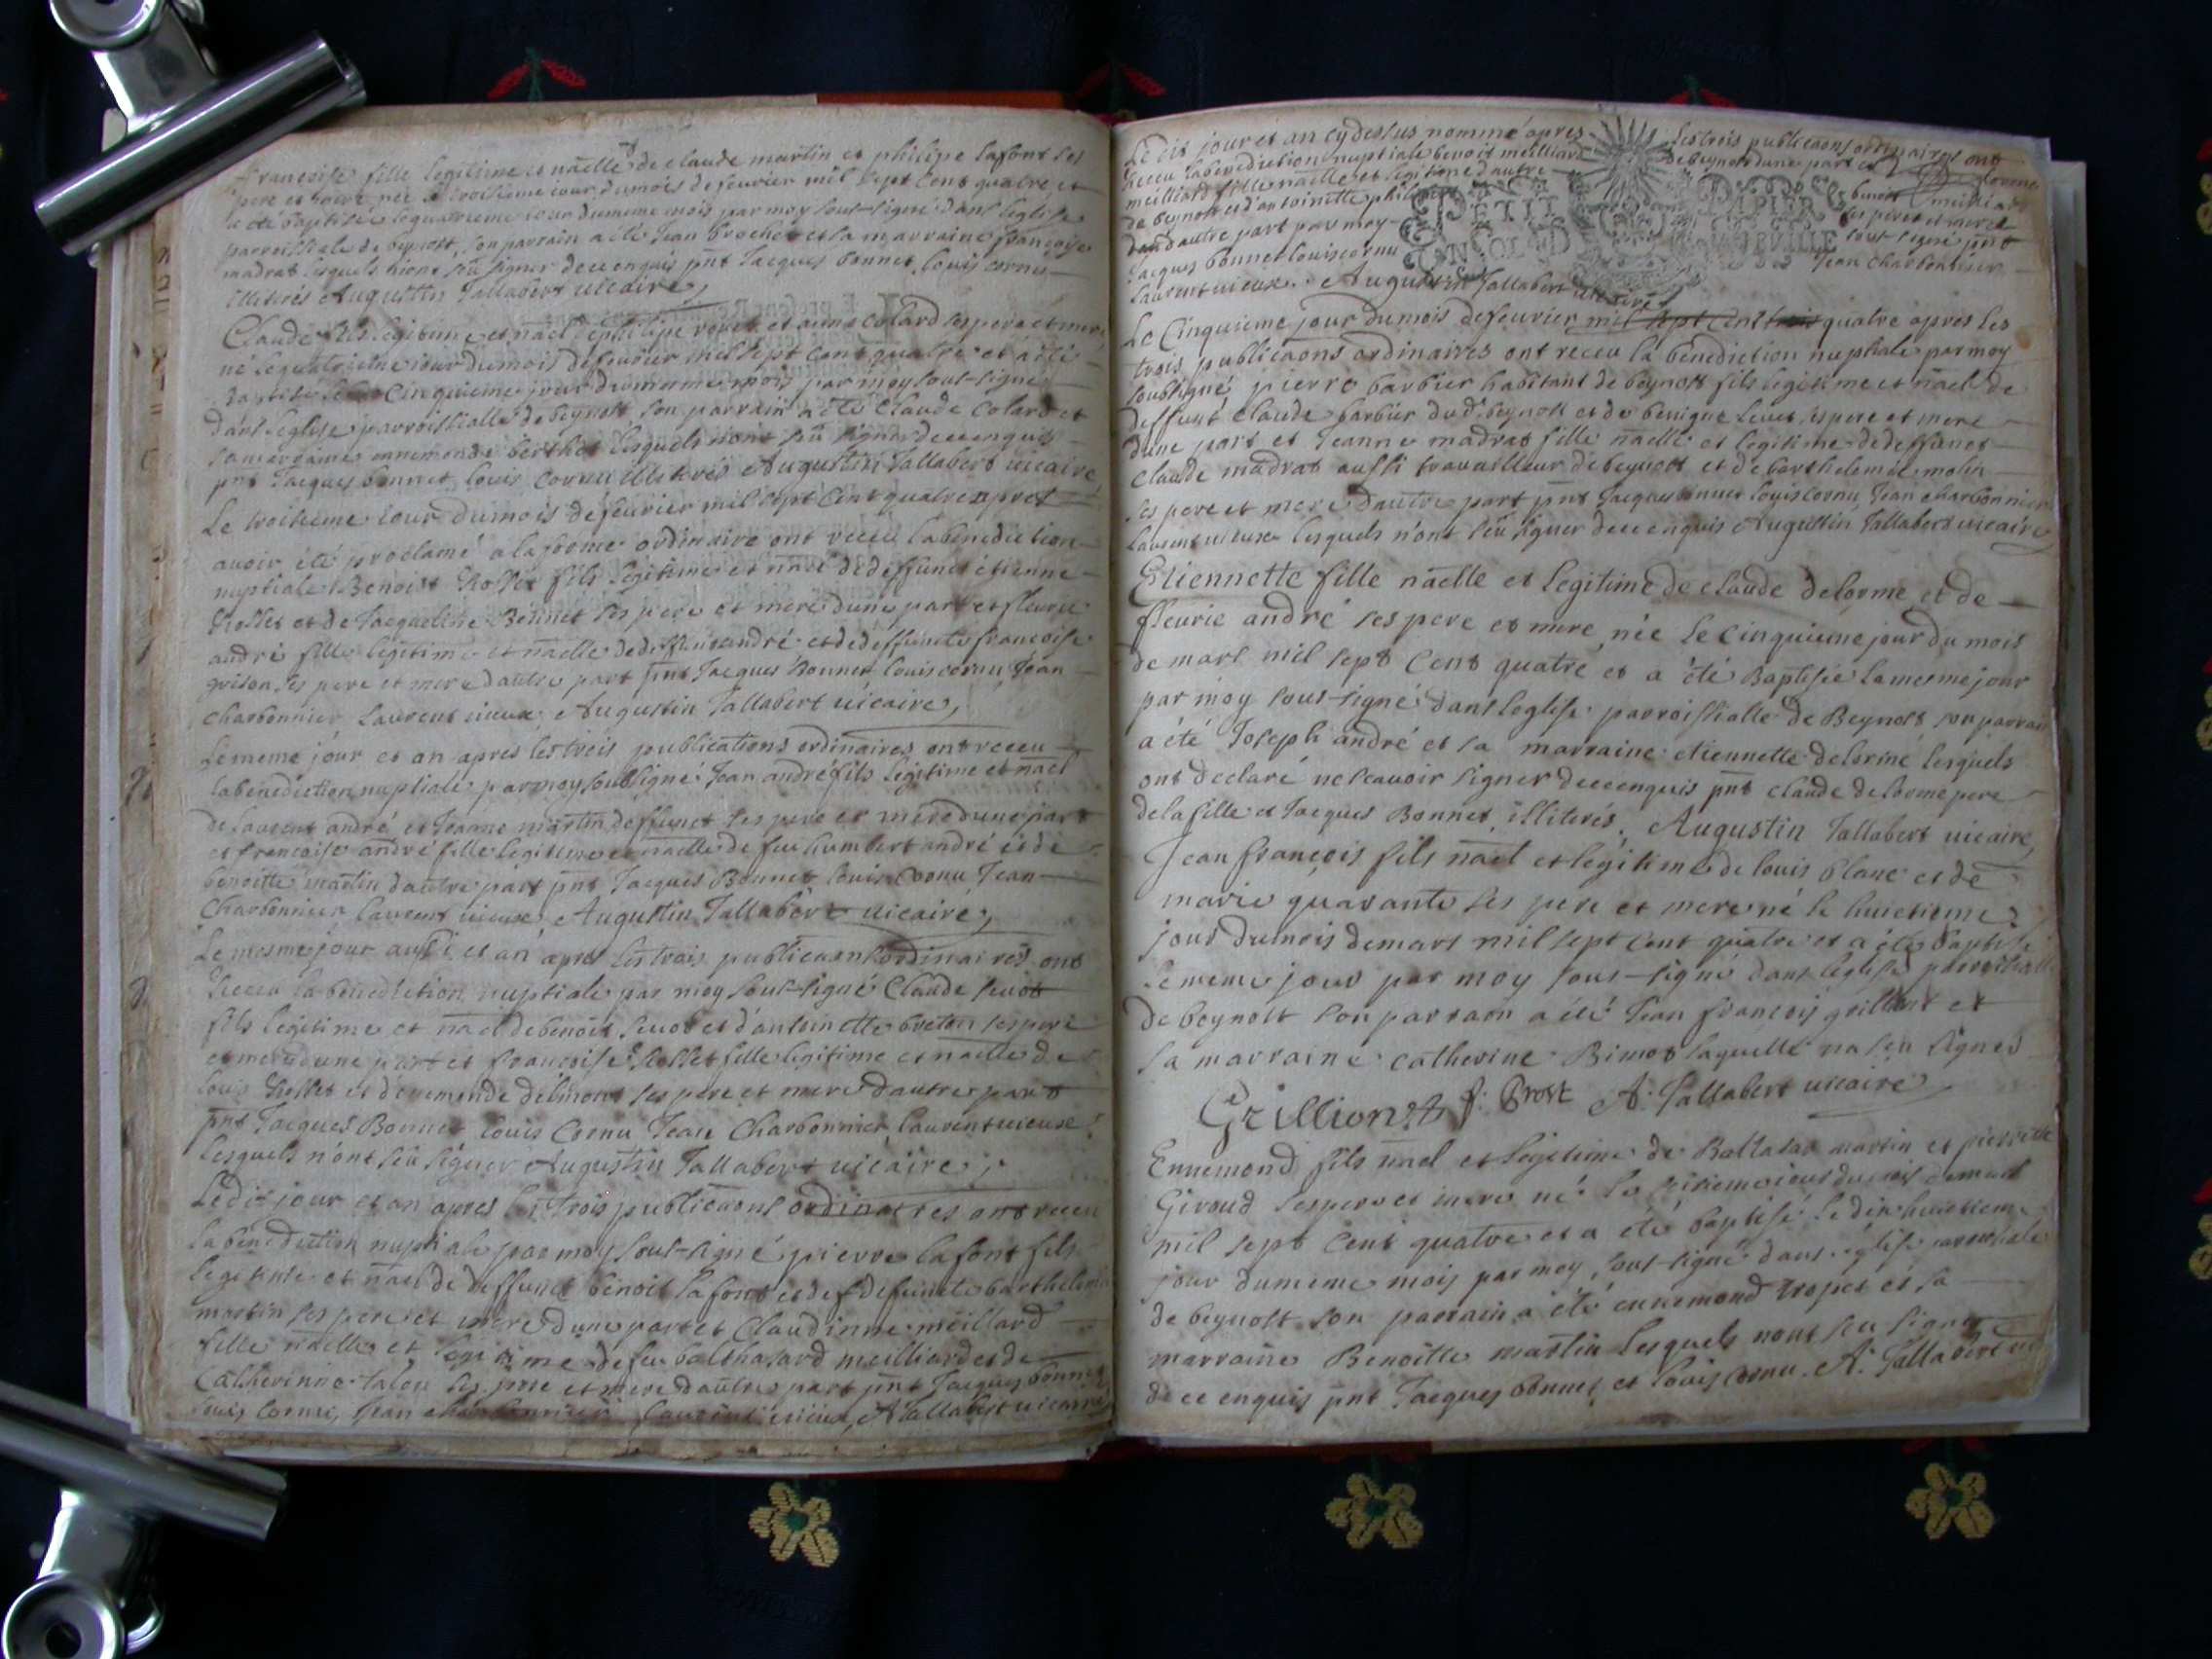 francoise fille legitime et naelle de claude martin et philipe lafont ses
pere et mere née le troisieme iour du mois de feurier mil sept cent quatre et
a eté baptisée le quatrieme iour du meme mois par moy sous-signé dans leglise
parroissiale de beynost, son parrain a eté Jean brochet et sa marraine francoise
madras lesquels nont sçû signer de ce enquis pnt Jacques bonnet louis cornu
illiterés Augustin Tallabert uicaire
Claude fils legitime et nael de philipe et anne colard ses pere et mere
né le quatrieme iour du mois de feurier mil sept cent quatre et a eté
baptisé le cinquieme jour du meme mois par moy sous-signé
dans leglise parroissialle de beynost son parrain a eté Claude Colard et
sa marraine ennemonde berthet lesquels n'ont sçû signer de ce enquis
pnt Jacques bonnet louis cornu illiterés Augustin Tallabert uicaire
Le troisieme iour du mois de feurier mil sept cent quatre apres
auoir été proclamé a la forme ordinaire ont receu la benediction
nuptiale Benoist Rollet fils legitime et nael de deffunct étienne
Rollet et de Jacqueline Bonnet ses pere et mere dune part et fleurie
andré fille legitime et naelle de deffunct andré et de deffuncte francoise
grison ses pere et mere dautre part pnt Jacques Bonnet louis cornu Jean
Charbonnier laurent uieux Augustin Tallabert uicaire,
Le meme jour et an apres les trois publications ordinaires ont receu
la benediction nuptiale par moy soussigné Jean andré fils legitime et nael
de laurent andré et Jeanne martin deffunct ses pere et mere dune part
et francoise andré fille legitime et naelle de feu humbert andré et de
benoitte martin dautre part pnt Jacques Bonnet louis Cornu Jean
Charbonnier laurent uieux Augustin Tallabert uicaire,
Le mesme jour aussi et an apres les trois publicaons ordinaires ont
receu la benediction nuptiale par moy sous-signé Claude seuos
fils legitime et nael de benoit seuos et d'antoinette breton ses pere
et mere dune part et francoise Rollet fille legitime et naelle de
louis Rollet et d'enemonde delmont ses pere et mere dautre part
pnt Jacques Bonnet louis Cornu Jean Charbonnier laurent uieux
lesquels n'ont sçû signer Augustin Tallabert uicaire,
Le dit jour et an apres les trois publicaons ordinaires ont receu
la benediction nuptiale par moy sous-signé pierre lafont fils
legitime et nael de deffunct benoit lafont et de defuncte barthelemie
martin ses pere et mere dune part et Claudinne meillard
fille naelle et legitime de feu balthasard meilliard et de
Catherinne talon ses pere et mere dautre part pnt Jacques bonnet
louis Cornu, Jean charbonnier laurent uieux, A Tallabert uicaire
Le dit jour et an cy dessus nommé apres les trois publicaons ordinaires ont
receu la benediction nuptiale benoit meilliard de beynost dune part et
meilliard fille naelle et legitime dautre benoit meilliard
de beynost et d'antoinette philipe ses pere et mere
dautre part par moy sous signé pnt
Jacques bonnet louis cornu Jean Charbonnier
laurent uieux. Augustin Tallabert uicaire
PETIT PAPIER
UN SOL
Le Cinquieme jour du mois de feurier mil sept cent quatre apres les
trois publicaons ordinaires ont receu la benediction nuptiale par moy
soussigné pierre barbier habitant de beynost fils legitime et nael de
deffunct claude barbier du d. beynost et de benigne ses pere et mere
dune part et Jeanne madras fille naelle et legitime de deffunct
claude madras aussi trauailleur de beynost et de barthelemie molin
ses pere et mere dautre part pnt Jacques bonnet louis cornu Jean charbonnier
laurent uieux lesquels n'ont sçû signer de ce enquis Augustin Tallabert uicaire
Etiennette fille naelle et legitime de claude delorme et de
fleurie andré ses pere et mere née le cinquieme jour du mois
de mars mil sept cent quatre et a été Baptisée la mesme jour
par moy sous-signé dans leglise parroissialle de Beynost son parrain
a été Joseph andré et sa marraine etiennette delorme lesquels
ont declaré ne scauoir signer de ce enquis pnt claude delorme pere
de la fille et Jacques Bonnet illiterés. Augustin Tallabert uicaire
Jean francois fils nael et legitime de louis blanc et de
marie quarante ses pere et mere né le huictieme
jour du mois de mars mil sept cent quatre et a été baptisé
le meme jour par moy sous-signé dans leglise parroissialle
de beynost son parrain a été Jean francois grilliont et
sa marraine catherine Bimot laquelle na sçu signer
Grilliont f. Prost A. Tallabert uicaire
Ennemond fils nael et legitime de Baltasar martin et pierrette
Giroud ses pere et mere né le seisieme iour du mois de mars
mil sept cent quatre et a été baptisé le dix huictieme
jour du meme mois par moy sous-signé dans leglise parroissiale
de beynost son parrain a été ennemond tropet et sa
marraine Benoitte martin lesquels nont sçu signer
de ce enquis pnt Jacques Bonnet et louis cornu. A. Tallabert ui